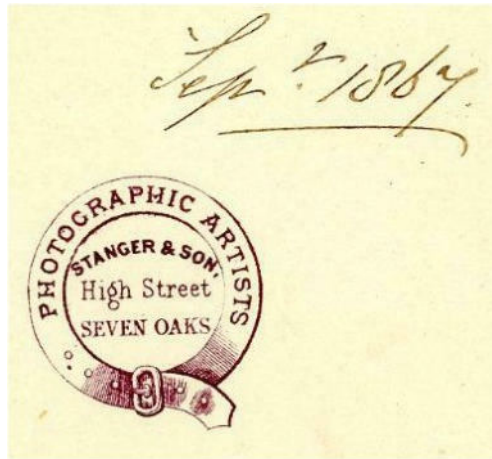 Sepr. 1867.
PHOTOGRAPHIC ARTISTS
STANGER & SON,
High Street
SEVEN OAKS